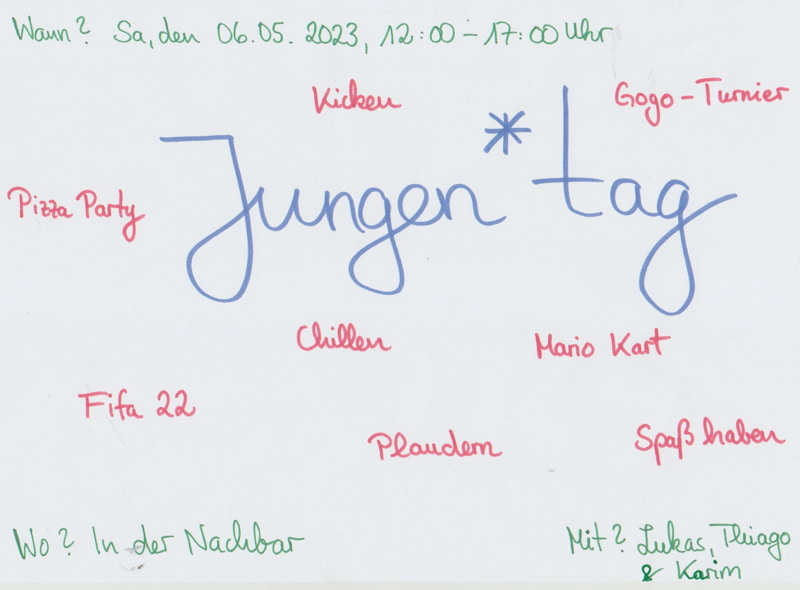 Wann? Sa, den 06.05. 2023, 12:00 - 17:00 Uhr
Kicken
Gogo-Turnier
Jungen*tag
Pizza Party
Chillen
Mario Kart
Fifa 22
Plaudern
Spaß haben
Wo? In der Nachbar
Mit? Lukas, Thiago
& Karim